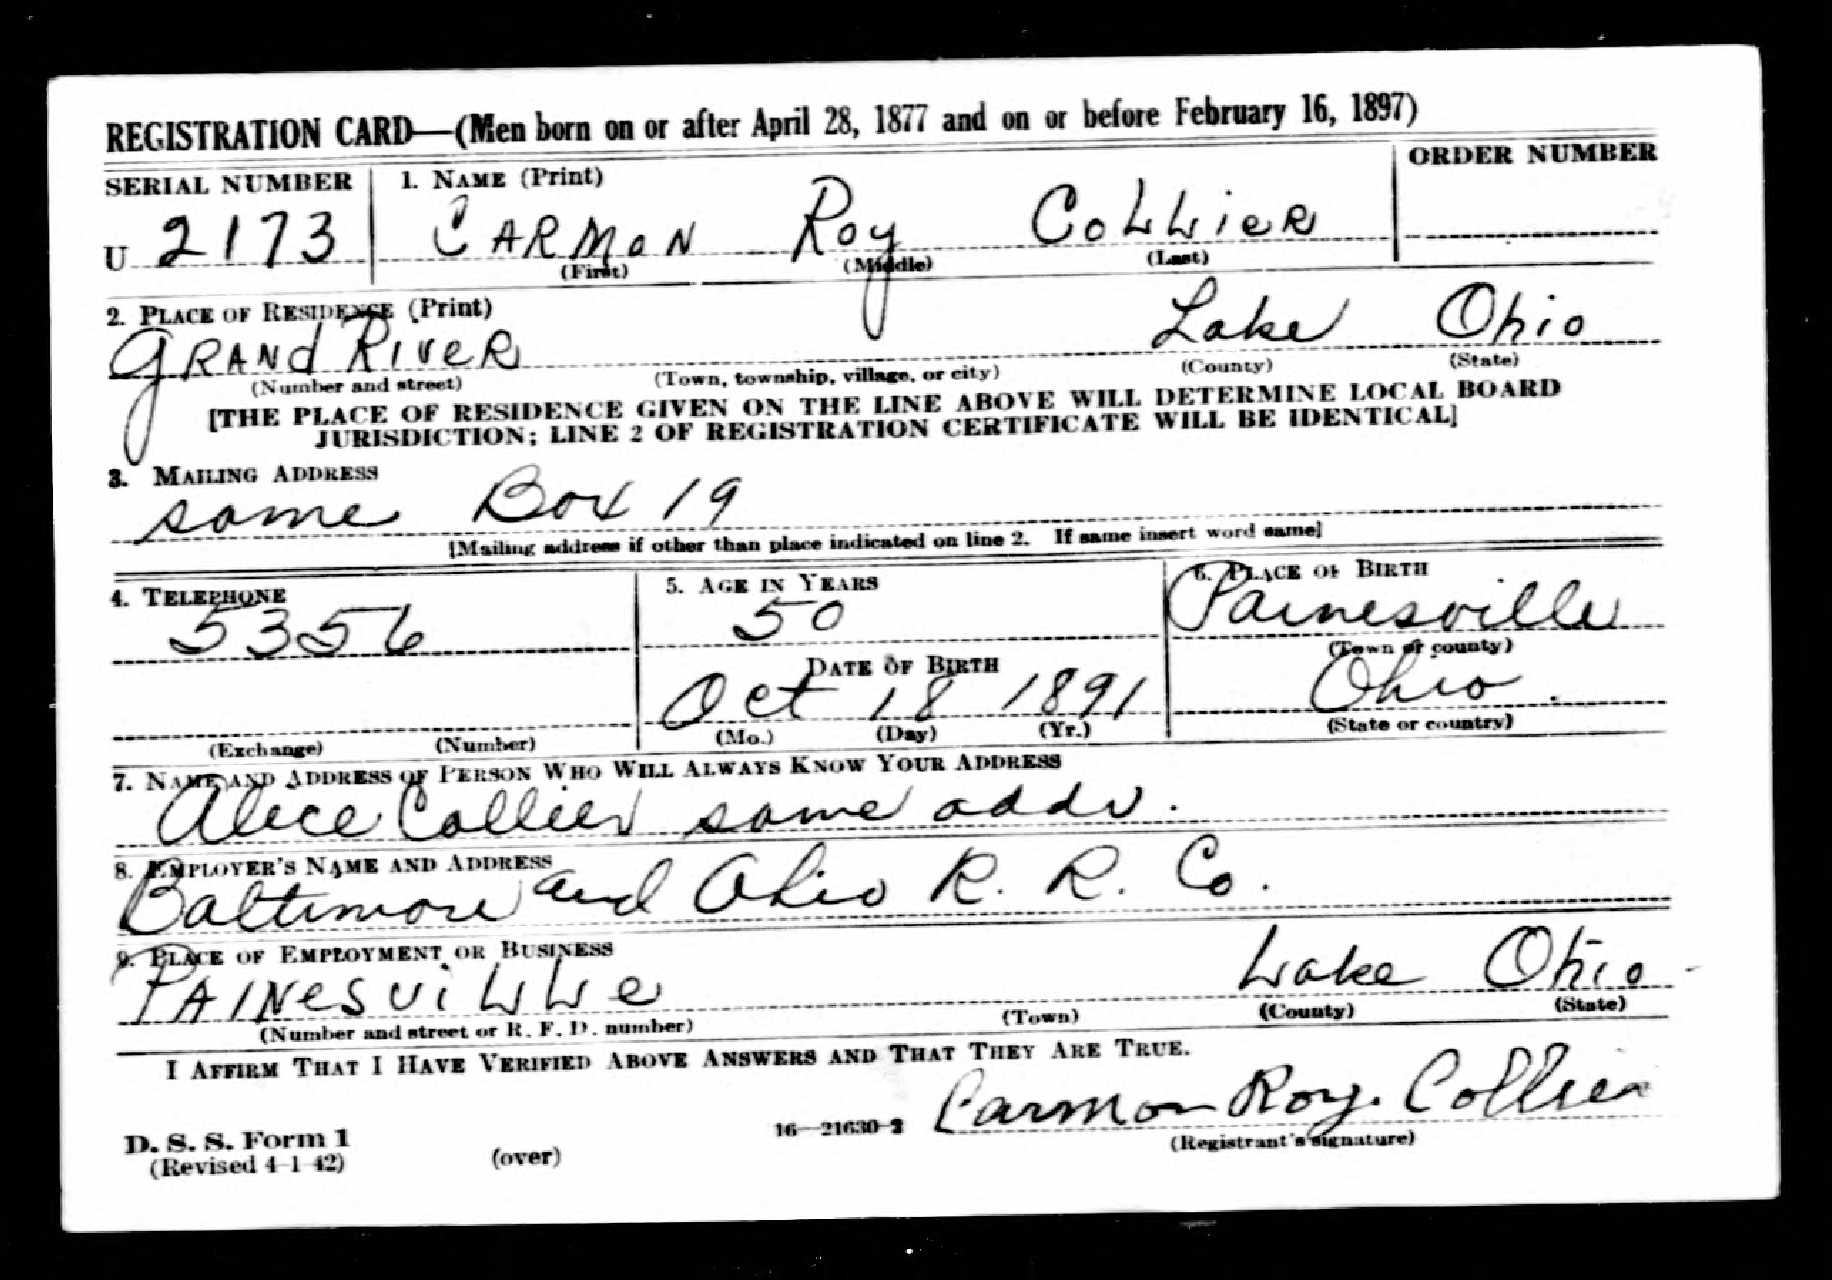 REGISTRATION CARD—(Men born on or after April 28, 1877 and on or before February 16, 1897)
SERIAL NUMBER 1. NAME (Print) ORDER NUMBER
U 2173 CARMON Roy COLLieR
(First) (Middle) (Last)
2. PLACE OF RESIDENCE (Print)
GRANd RIVeR Lake Ohio
(Number and street) (Town, township, village, or city) (County) (State)
[THE PLACE OF RESIDENCE GIVEN ON THE LINE ABOVE WILL DETERMINE LOCAL BOARD
JURISDICTION; LINE 2 OF REGISTRATION CERTIFICATE WILL BE IDENTICAL]
3. MAILING ADDRESS
same Box 19
[Mailing address if other than place indicated on line 2. If same insert word same]
4. TELEPHONE 5. AGE IN YEARS 6. PLACE OF BIRTH
5356 50 Painesville
(Town or county)
DATE OF BIRTH
Oct 18 1891 Ohio
(Exchange) (Number) (Mo.) (Day) (Yr.) (State or country)
7. NAME AND ADDRESS OF PERSON WHO WILL ALWAYS KNOW YOUR ADDRESS
Alice Collier same addr.
8. EMPLOYER'S NAME AND ADDRESS
Baltimore and Ohio R. R. Co.
9. PLACE OF EMPLOYMENT OR BUSINESS
PAINesviLLe Lake Ohio
(Number and street or R. F. D. number) (Town) (County) (State)
I AFFIRM THAT I HAVE VERIFIED ABOVE ANSWERS AND THAT THEY ARE TRUE.
Carmon Roy. Collier
D. S. S. Form 1 16—21630-2 (Registrant's signature)
(Revised 4-1-42) (over)